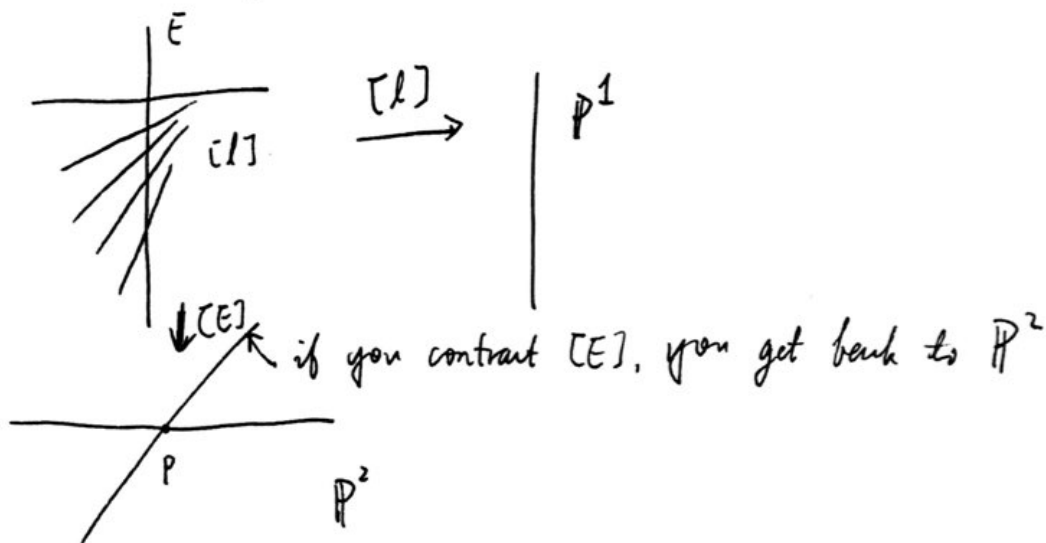 E
[l]
ℙ¹
[l]
[E]
if you contract [E], you get back to ℙ²
P
ℙ²